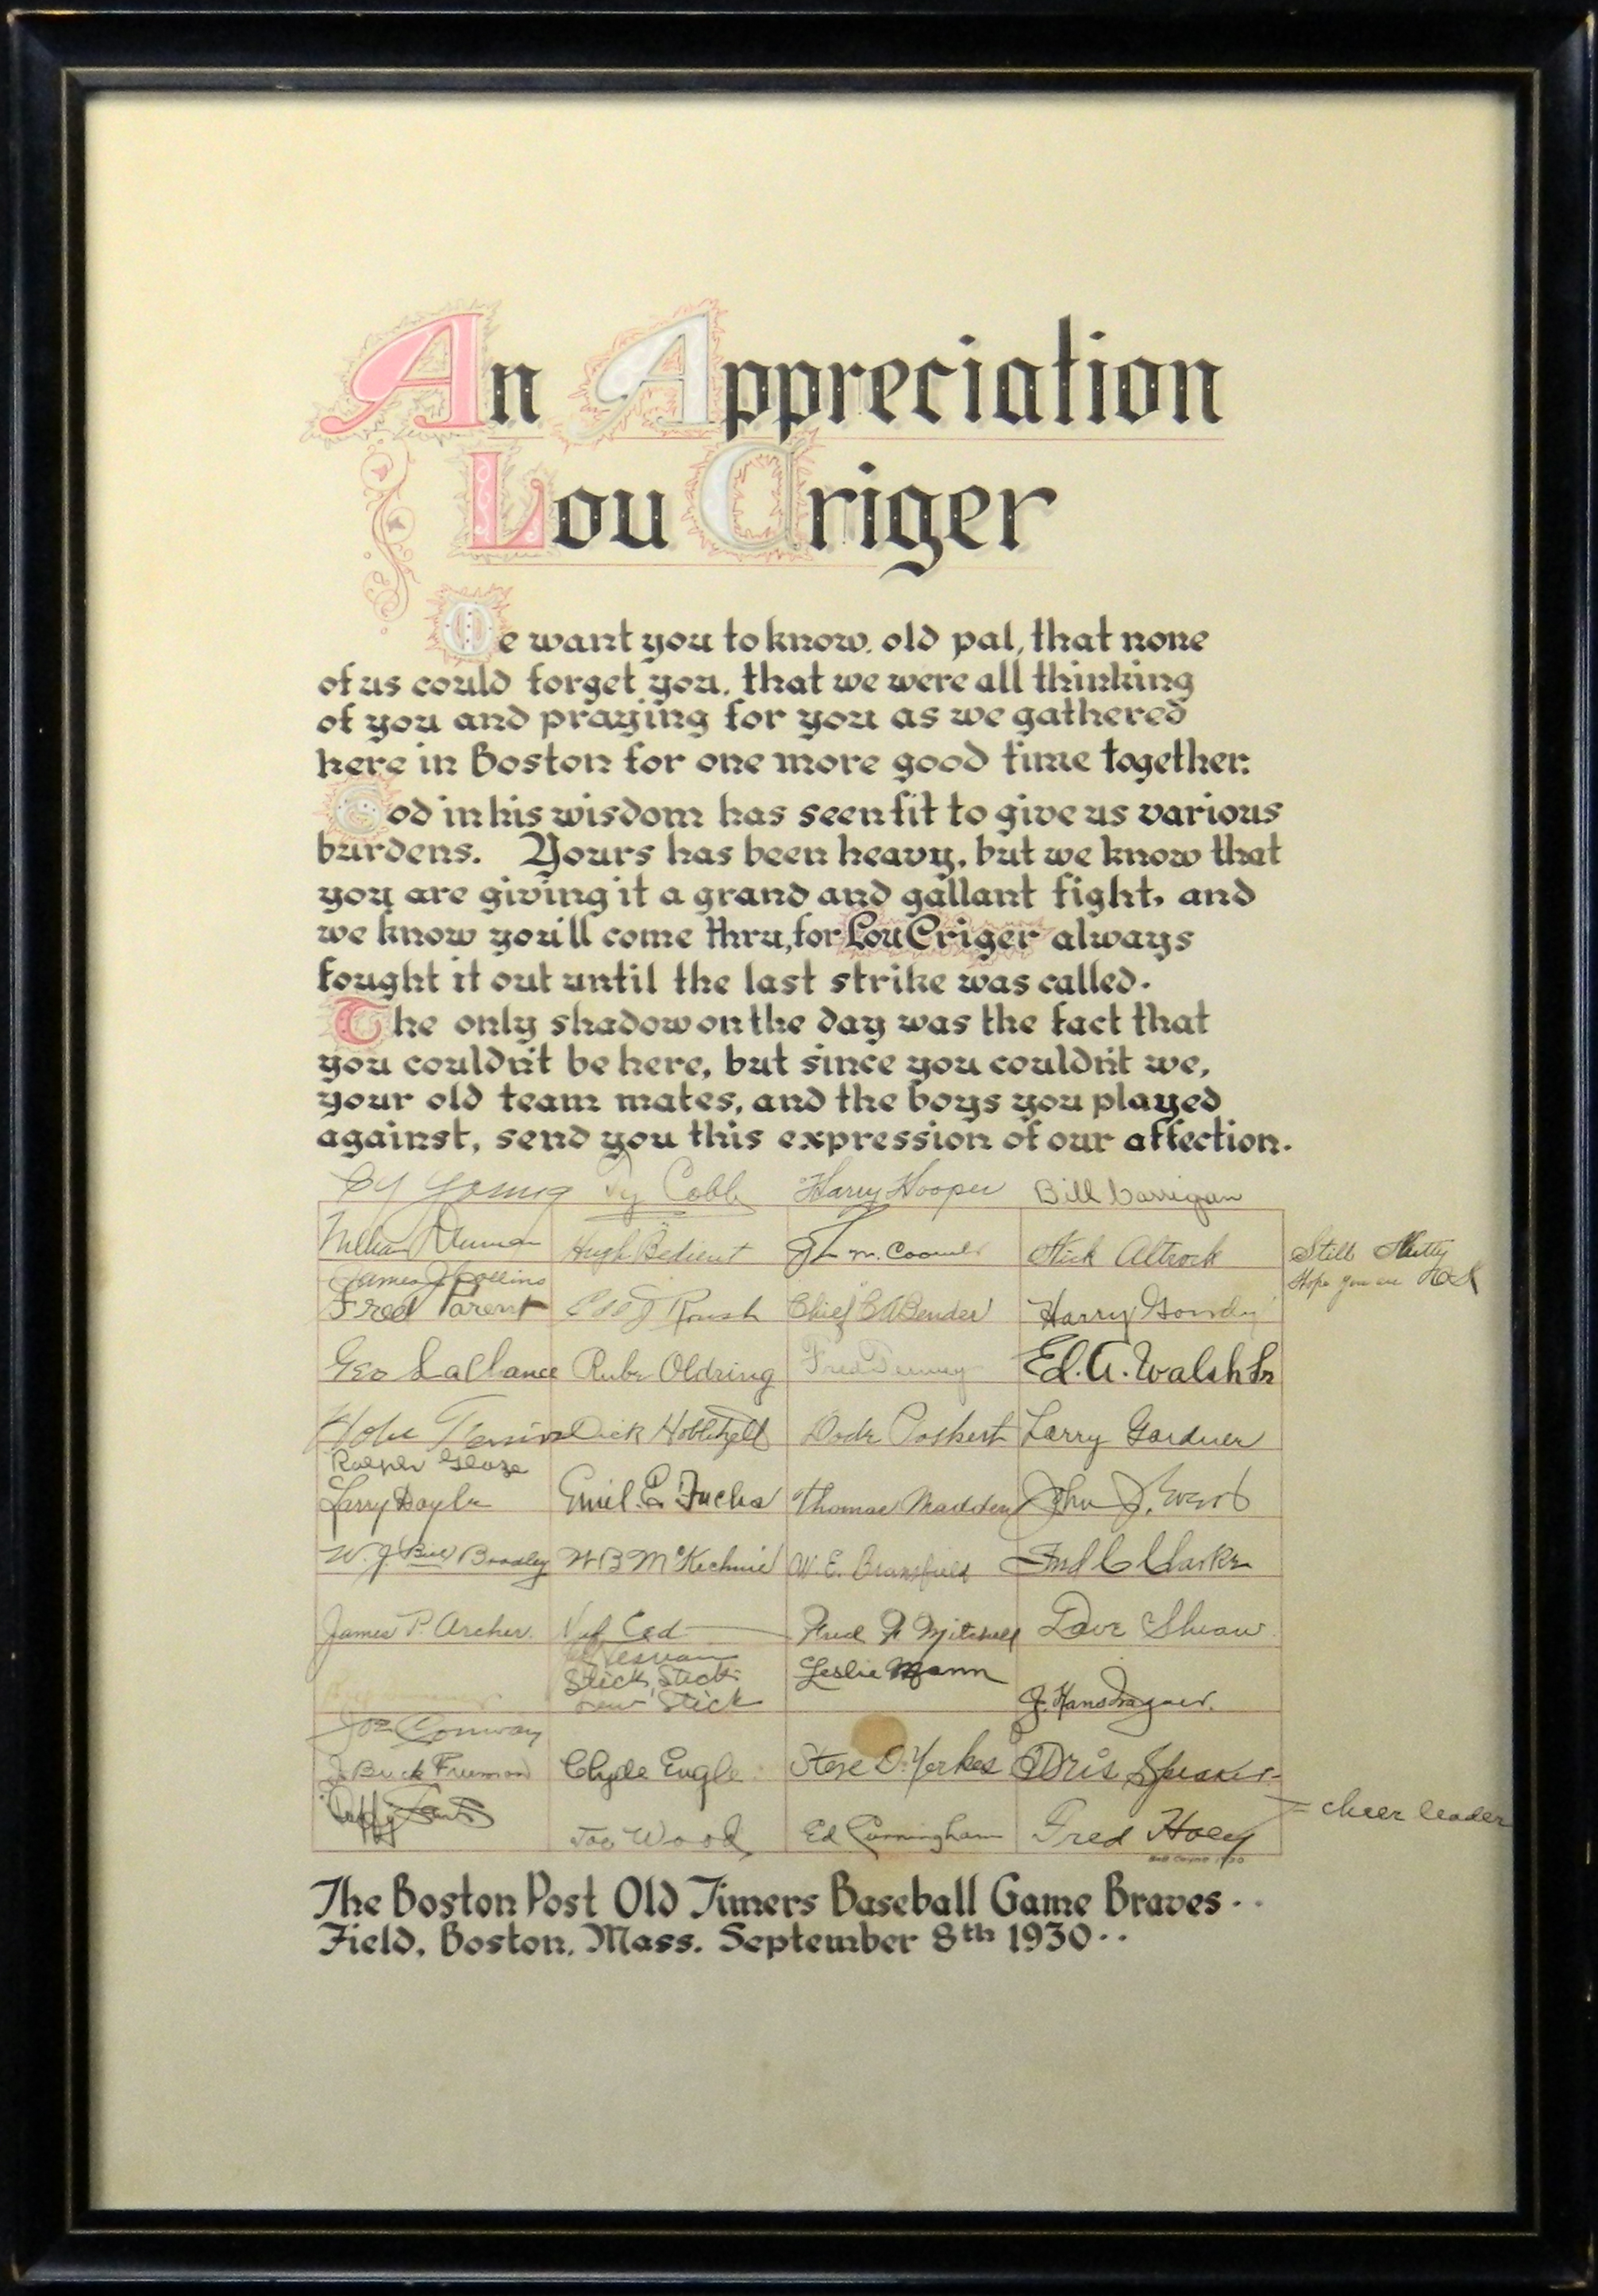 An Appreciation
Lou Criger
We want you to know, old pal, that none
of us could forget you, that we were all thinking
of you and praying for you as we gathered
here in Boston for one more good time together.
God in his wisdom has seen fit to give us various
burdens. Yours has been heavy, but we know that
you are giving it a grand and gallant fight, and
we know you'll come thru, for Lou Criger always
fought it out until the last strike was called.
The only shadow on the day was the fact that
you couldn't be here, but since you couldn't we,
your old team mates, and the boys you played
against, send you this expression of our affection.
Cy Young Ty Cobb Harry Hooper Bill Carrigan
Hugh Bedient Nick Altrock Still Nutty
James J Collins Hope you are
Fred Parent Edd J Roush Chief CABender Harry Gowdy
Geo LaChance Rube Oldring Fred Tenney Ed. A. Walsh Sr
Hobe Ferris Dick Hoblitzell Dode Paskert Larry Gardner
Ralph Glaze
Larry Doyle Emil E. Fuchs Thomas Madden John J. Evers
W. J. Bill Bradley W B McKechnie W. E. Bransfield Fred C Clarke
James P. Archer. Nuf Ced Fred F Mitchell Dave Shean
Stick, Stick Leslie Mann
Stick J. Hans Wagner.
Joe Conway
J. Buck Freeman Clyde Engle Steve D. Yerkes Tris Speaker
Duffy Lewis = cheer leader
Joe Wood Ed Cunningham Fred Hoey
The Boston Post Old Timers Baseball Game Braves..
Field, Boston, Mass. September 8th 1930..